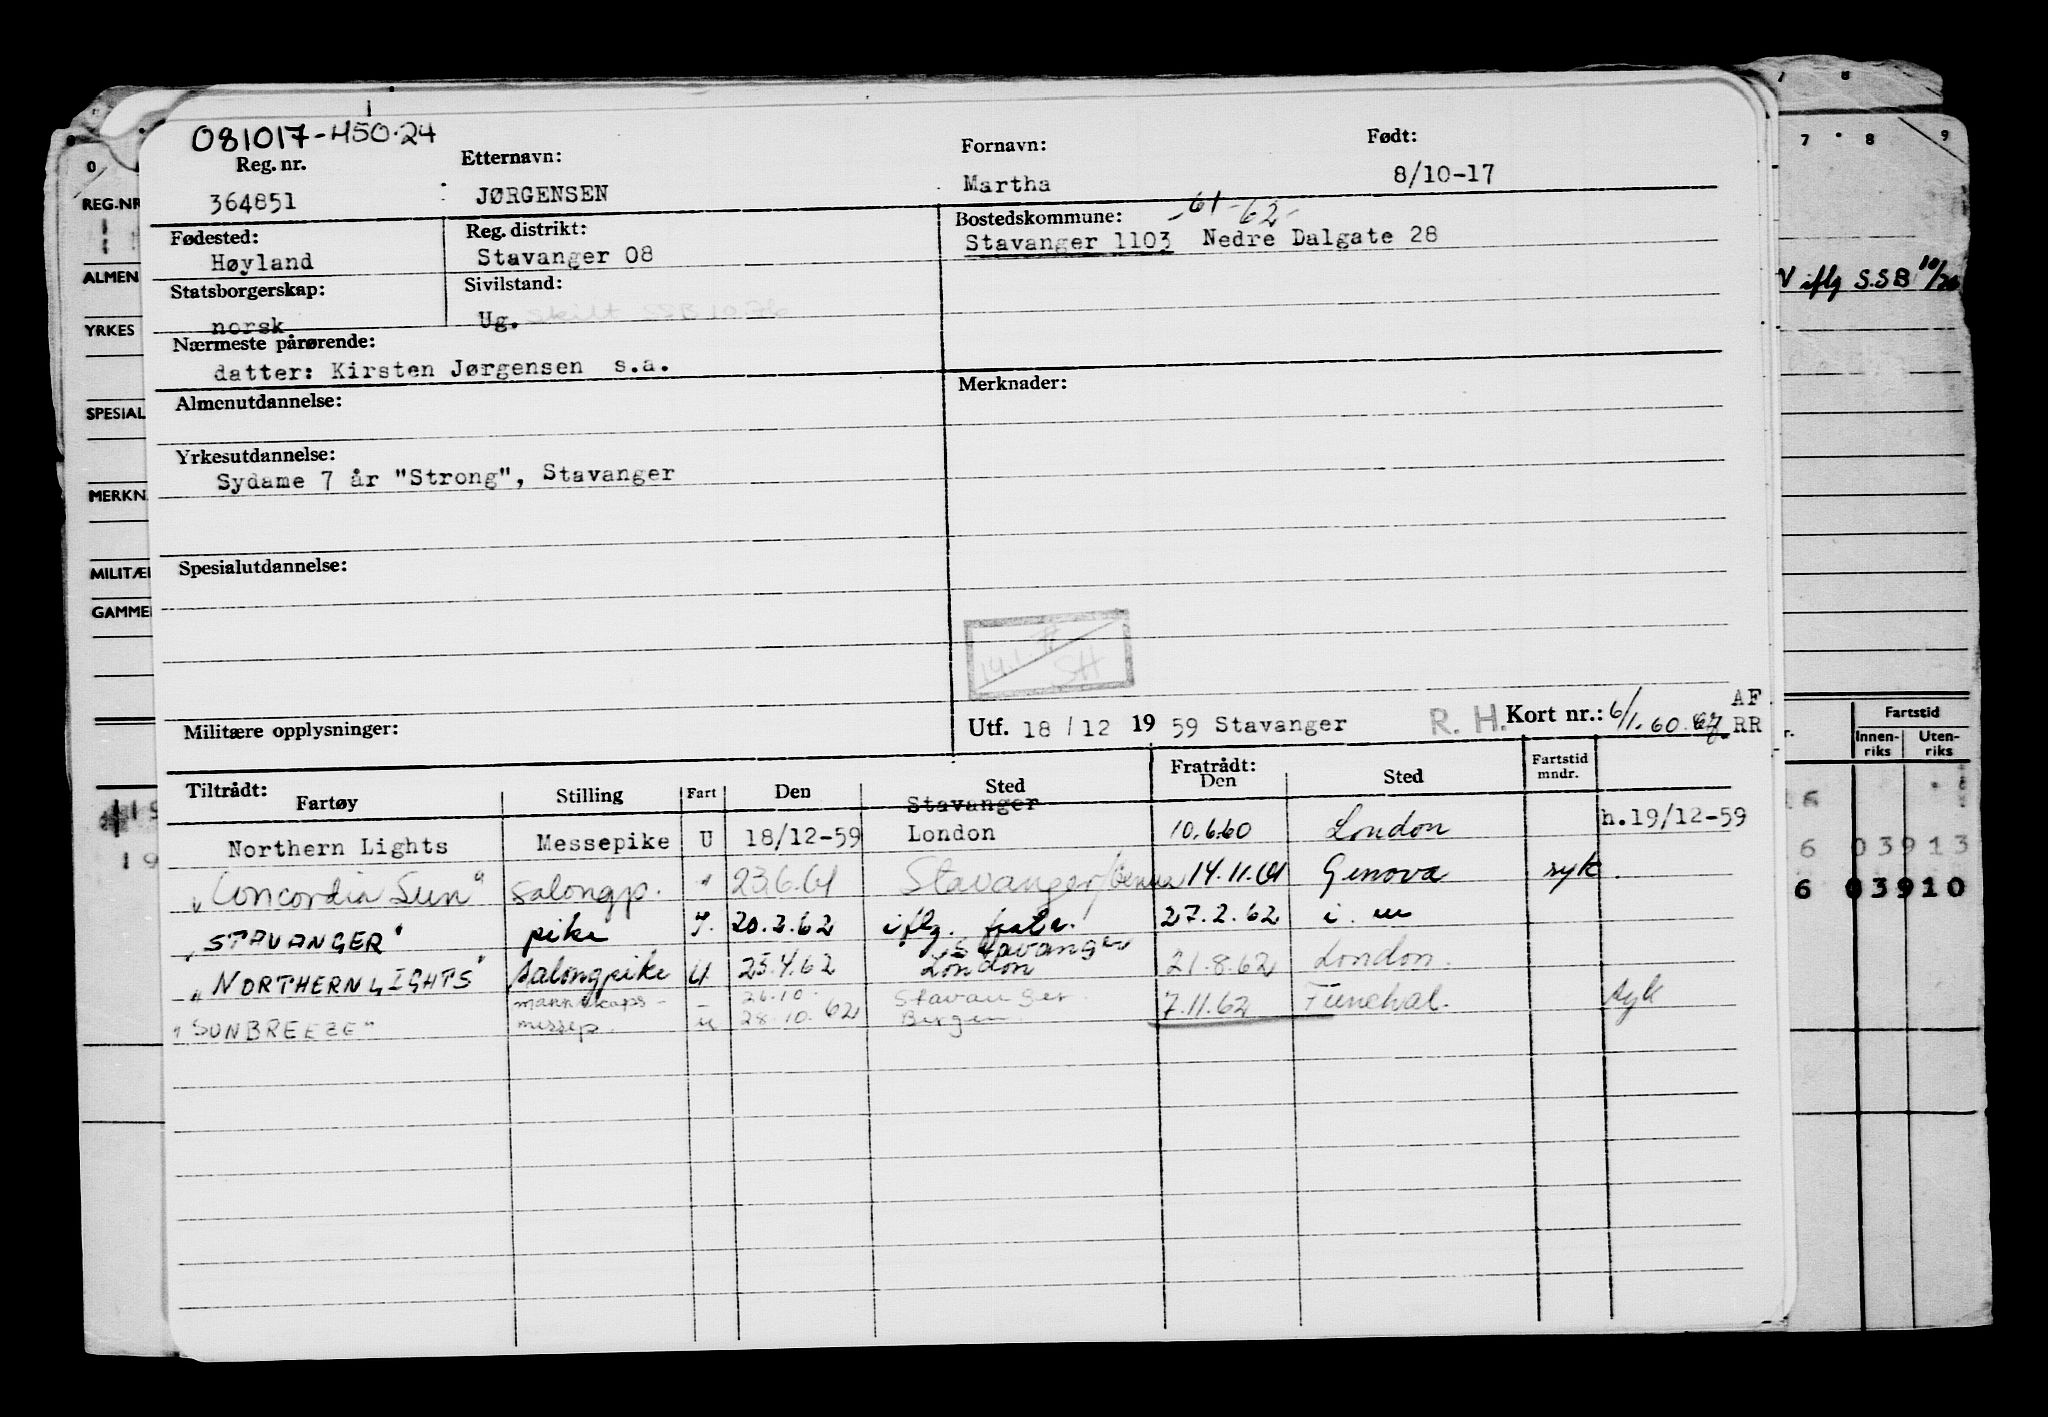 081017-450.24
Reg. nr. Etternavn: Fornavn: Født:
364851 JØRGENSEN Martha 8/10-17
Fødested: Reg. distrikt: Bostedskommune: -61-62-
Høyland Stavanger 08 Stavanger 1103 Nedre Dalgate 28
Statsborgerskap: Sivilstand:
norsk Ug. skilt SSB 10.76
Nærmeste pårørende:
datter: Kirsten Jørgensen s.a.
Almenutdannelse: Merknader:
Yrkesutdannelse:
Sydame 7 år "Strong", Stavanger
Spesialutdannelse:
SH
Militære opplysninger: Utf. 18/12 1959 Stavanger R. H. Kort nr.: 6/1.60. AF
RR
Tiltrådt: Fratrådt: Fartstid mndr.
Fartøy Stilling Fart Den Sted Den Sted
Stavanger
Northern Lights Messepike U 18/12-59 London 10.6.60 London h.19/12-59
"Concordia Sun" salongp. " 23.6.61 Stavanger/Genua 14.11.61 Genova syk.
"STAVANGER" pike 20.2.62 iflg. fratr. 27.2.62 i. m
Stavanger
"NORTHERN LIGHTS" salongpike U 25.4.62 London 21.8.62 London.
mannskaps- - 26.10. Stavanger.
"SUNBREEZE" messep. u 28.10.62 Bergen. 7.11.62 Funchal. syk
0 7 8 9
REG.NR
ALMEN
V iflg S.S.B 10/76
YRKES
SPESIAL
MERKN
MILITÆ
GAMME
Fartstid
Innen-
riks
Uten-
riks
6 03913
6 03910